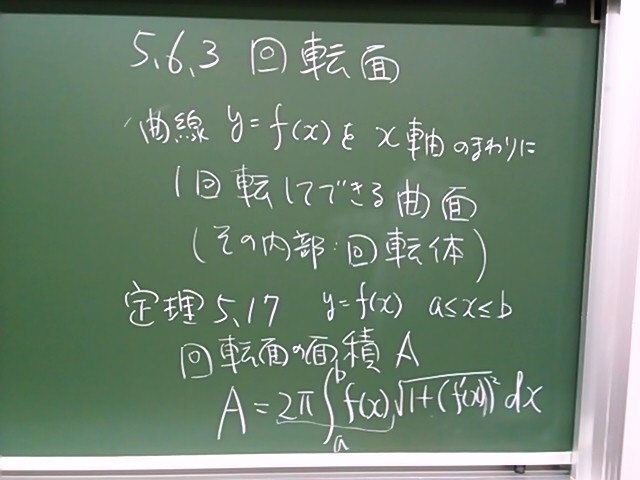 5.6.3 回転面
曲線 y=f(x)を x軸のまわりに
1回転してできる曲面
(その内部:回転体)
定理5.17 y=f(x) a≤x≤b
回転面の面積 A
A=2π∫_a^b f(x)√(1+(f'(x))²) dx